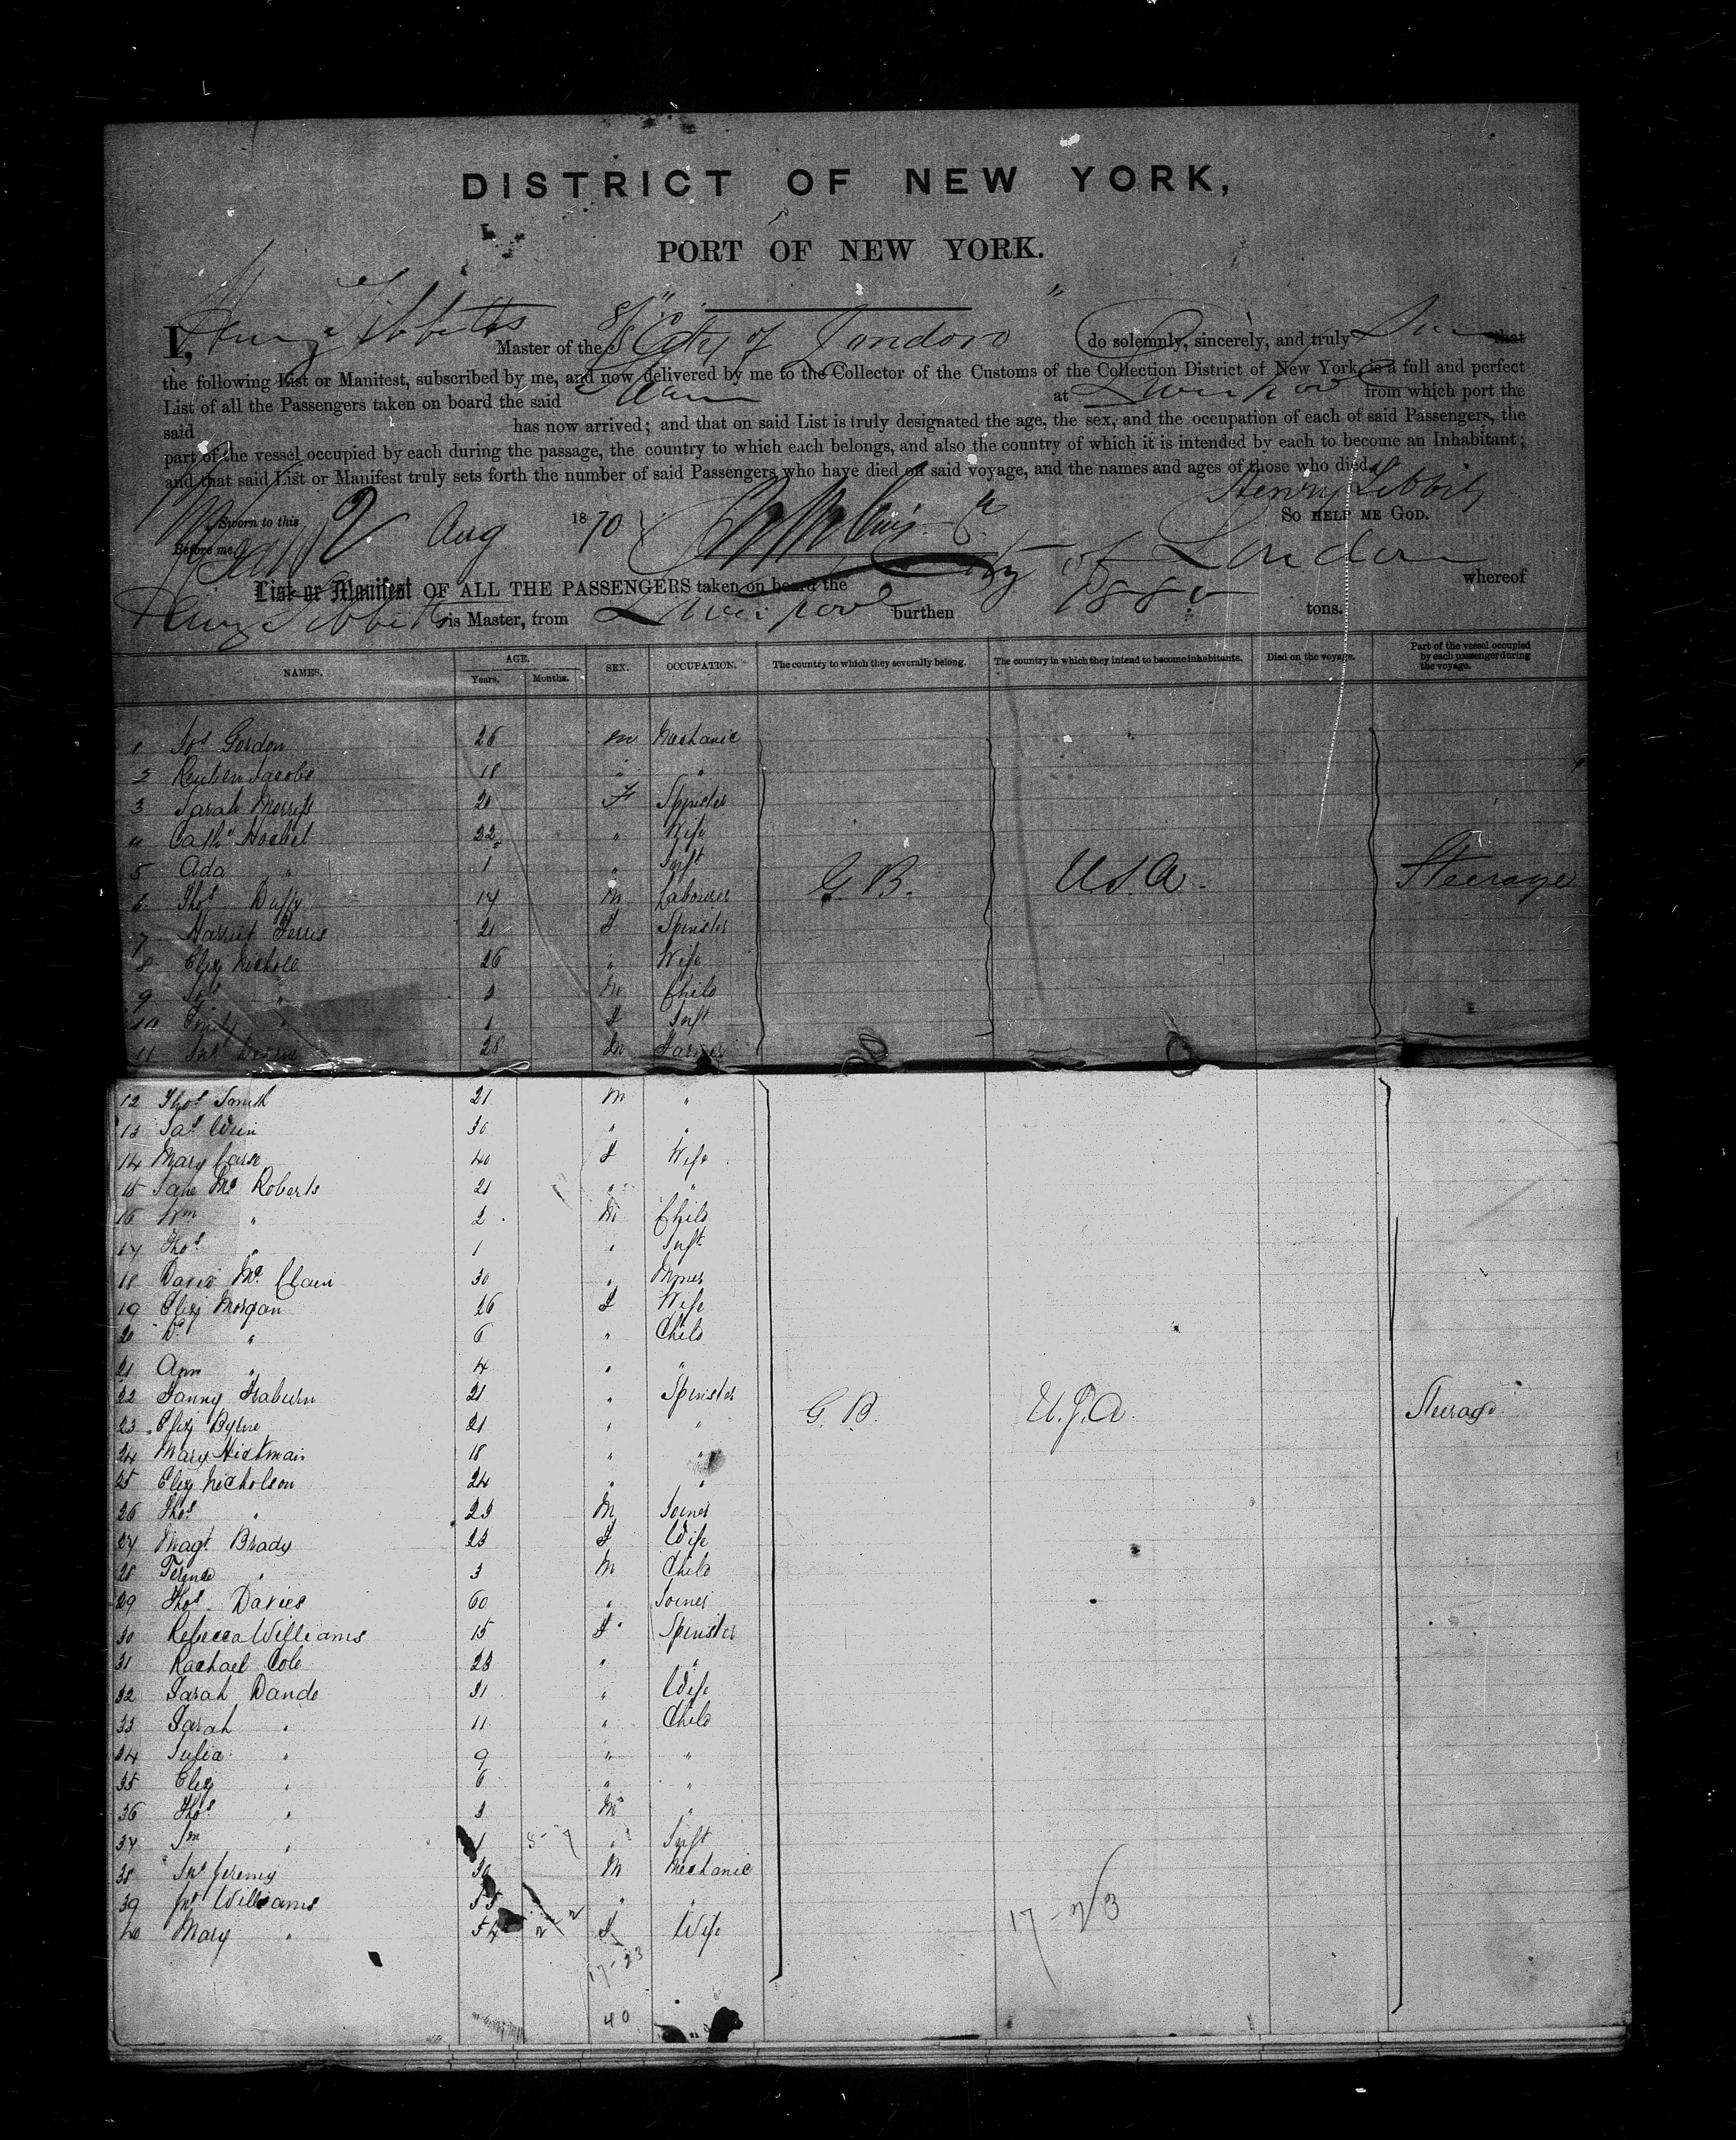 DISTRICT OF NEW YORK,
PORT OF NEW YORK.
I, Henry Tibbetts Master of the S/S City of London do solemnly, sincerely, and truly that
the following List or Manifest, subscribed by me, and now delivered by me to the Collector of the Customs of the Collection District of New York, is a full and perfect
List of all the Passengers taken on board the said at Liverpool from which port the
said has now arrived; and that on said List is truly designated the age, the sex, and the occupation of each of said Passengers, the
part of the vessel occupied by each during the passage, the country to which each belongs, and also the country of which it is intended by each to become an Inhabitant;
and that said List or Manifest truly sets forth the number of said Passengers who have died on said voyage, and the names and ages of those who died.
Henry Tibbits
Sworn to this 2 Aug 1870 So HELP ME GOD.
Before me,
List or Manifest OF ALL THE PASSENGERS taken on board the City of London whereof
Henry Tibbetts is Master, from Liverpool burthen 1880 tons.
NAMES. AGE. Years. Months. SEX. OCCUPATION. The country to which they severally belong. The country in which they intend to become inhabitants. Died on the voyage. Part of the vessel occupied by each passenger during the voyage.
1 Jos Gordon 26 m Mechanic
2 Reuben Jacobs 18 " "
3 Sarah Morris 20 F Spinster
4 22 " Wife
5 Ada " 1 " Inft G.B. U.S.A. Steerage
6 Thos Duffy 17 M Laborer
7 Harriet Ferris 21 F Spinster
8 Eliz Nicholl 26 " Wife
9 Jos " 3 M Child
10 Emily " 1 F Inft
11 Jno 28 M Farmer
12 Thos Smith 21 M "
13 Jas 30 " "
14 Mary Carse 40 F Wife
15 Jane Mc Roberts 21 " "
16 Wm " 2 M Child
17 Thos " 1 " Inft
18 David Mc Clain 30 " Miner
19 Eliz Morgan 26 F Wife
20 Do " 6 " Child
21 Ann " 4 " "
22 Fanny Fraburn 21 " Spinster
23 Eliz Byrne 21 " " G.B. U.S.A. Steerage
24 Mary Hickman 18 " "
25 Eliz Nicholson 24 " "
26 Thos " 23 M Joiner
27 Magt Brady 23 F Wife
28 Terence " 3 M Child
29 Thos Davies 60 " Joiner
30 Rebecca Williams 15 F Spinster
31 Rachael Cole 23 " "
32 Sarah Dando 31 " Wife
33 Sarah " 11 " Child
34 Julia " 9 " "
35 Eliz " 6 " "
36 Thos " 3 M "
37 " 1 " Inft
38 Jno Jeremy 30 M Mechanic
39 Jno Williams 55 " "
40 Mary " 54 F Wife
17-23
17-23
40